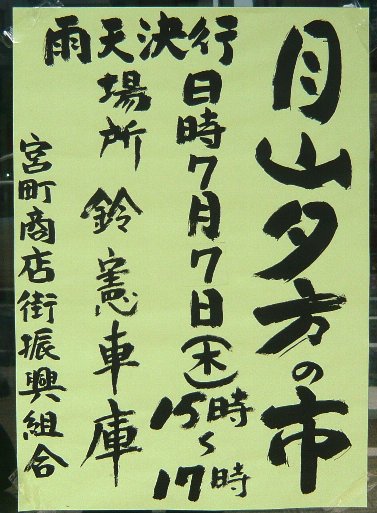 月山夕方の市
雨天決行
日時7月7日(木)
15時〜17時
場所 鈴憲車庫
宮町商店街振興組合